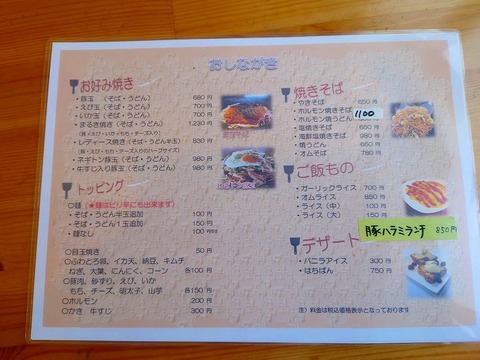 おしながき
お好み焼き
・豚玉（そば・うどん） 680円
・えび玉（そば・うどん） 700円
・いか玉（そば・うどん） 700円
・まるさ焼き（そば・うどん） 1,230円
（豚・えび・いか・もち・チーズ入り）
・レディース焼き（そば・うどん半玉） 830円
・ネギトン豚玉（そば・うどん） 980円
・牛すじ入り豚玉（そば・うどん） 980円
トッピング
〇麺（★麺はピリ辛にも出来ます）
・そば・うどん半玉追加 100円
・そば・うどん1玉追加 150円
・麺なし 100円
〇目玉焼き 50円
〇ふわとろ卵、イカ天、納豆、キムチ
ねぎ、大葉、にんにく、コーン 各100円
〇豚肉、砂ずり、えび、いか
もち、チーズ、明太子、山芋 各150円
〇ホルモン 200円
〇かき 牛すじ 300円
焼きそば
・やきそば 650円
・ホルモン焼きそば
1100
・ホルモン焼うどん
・塩焼きそば 650円
・海鮮塩焼きそば 980円
・焼うどん 650円
・オムそば 780円
ご飯もの
・ガーリックライス 700円
・オムライス 850円
・ライス（中） 100円
・ライス（大） 150円
豚ハラミランチ 850円
デザート
・バニラアイス 300円
・はちぱん 750円
注）料金は税込価格表示となっております